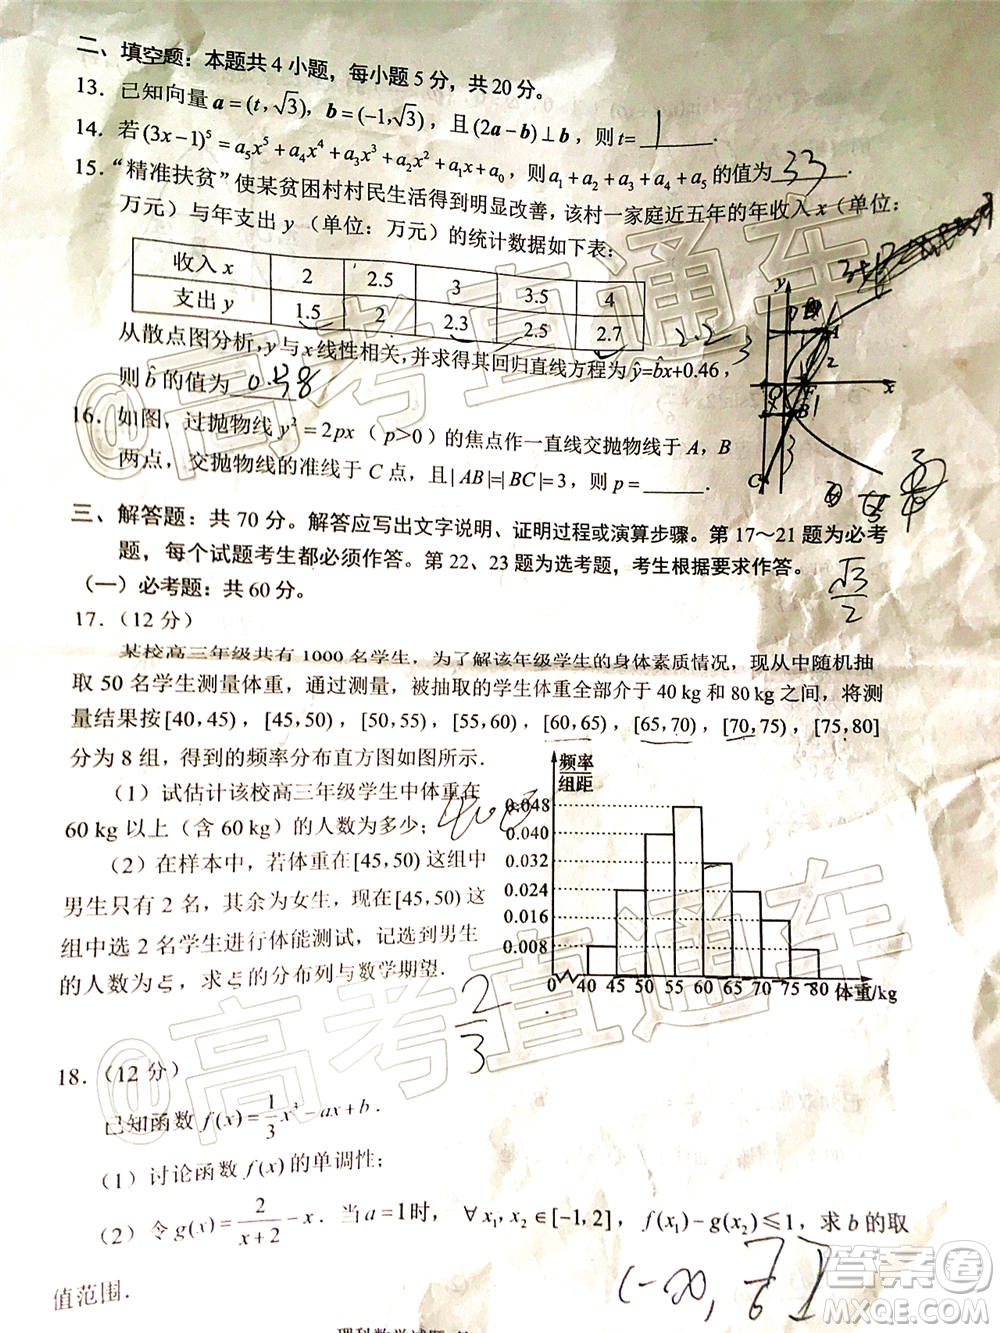 二、填空题：本题共 4 小题，每小题 5 分，共 20 分。
13．已知向量 a＝(t, √3)，b＝(−1, √3)，且 (2a−b)⊥b，则 t= 1
14．若 (3x−1)⁵＝a₅x⁵＋a₄x⁴＋a₃x³＋a₂x²＋a₁x＋a₀，则 a₁＋a₂＋a₃＋a₄＋a₅ 的值为 33 ．
15．“精准扶贫”使某贫困村村民生活得到明显改善，该村一家庭近五年的年收入 x（单位：
万元）与年支出 y（单位：万元）的统计数据如下表：
收入 x 2 2.5 3 3.5 4
支出 y 1.5 2 2.3 2.5 2.7 2.2
从散点图分析，y 与 x 线性相关，并求得其回归直线方程为 ŷ=b̂x+0.46，
则 b̂ 的值为
16．如图，过抛物线 y²＝2px（p>0）的焦点作一直线交抛物线于 A，B
两点，交抛物线的准线于 C 点，且|AB|=|BC|=3，则 p＝______．
y
A
B
C
x
√3/2
三、解答题：共 70 分。解答应写出文字说明、证明过程或演算步骤。第 17～21 题为必考
题，每个试题考生都必须作答。第 22、23 题为选考题，考生根据要求作答。
（一）必考题：共 60 分。
17．（12 分）
某校高三年级共有 1000 名学生，为了解该年级学生的身体素质情况，现从中随机抽
取 50 名学生测量体重，通过测量，被抽取的学生体重全部介于 40 kg 和 80 kg 之间，将测
量结果按 [40，45)，[45，50)，[50，55)，[55，60)，[60，65)，[65，70)，[70，75)，[75，80]
分为 8 组，得到的频率分布直方图如图所示．
（1）试估计该校高三年级学生中体重在
60 kg 以上（含 60 kg）的人数为多少；
（2）在样本中，若体重在 [45，50) 这组中
男生只有 2 名，其余为女生，现在 [45，50) 这
组中选 2 名学生进行体能测试，记选到男生
的人数为 ξ，求 ξ 的分布列与数学期望．
2/3
频率
组距
0.048
0.040
0.032
0.024
0.016
0.008
0 40 45 50 55 60 65 70 75 80 体重/kg
18．（12 分）
已知函数 f(x)＝1/3 x³−ax＋b．
（1）讨论函数 f(x) 的单调性；
（2）令 g(x)＝2/(x＋2)−x．当 a＝1时，∀x₁, x₂∈[−1, 2]，f(x₁)−g(x₂)≤1，求 b 的取
值范围．
(−∞, 7/6]
@高考直通车
@高考直通车
答案圈
MXQE.COM